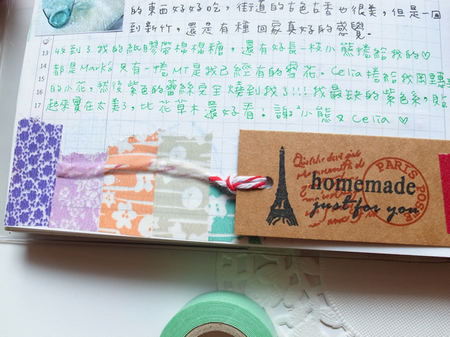 的東西好好吃，街道的古色古香也很美，但是一回
到新竹，還是有種回家真好的感覺。
收到了我的紙膠帶棉棉糖，還有好長一枝小熊捲給我的♡
都是Mark's只有一捲MT是我已經有的雪花。Celia捲給我周
的小花，然後紫色的蕾絲完全燒到我了!!! 我最缺的紫色系，
起來實在太美了，比花草木還好看！謝謝小熊 & Celia ♡
13
14
15
16
17
homemade
just for you
PARIS POST